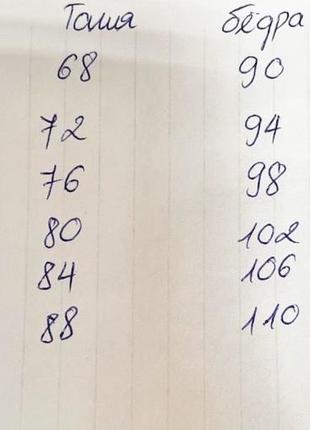 Талия бёдра
68 90
72 94
76 98
80 102
84 106
88 110